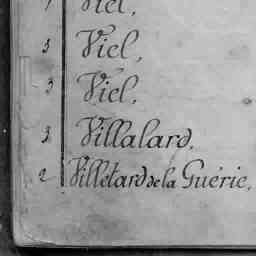 Viel,
3 Viel,
3 Viel.
3 Villalard,
2 Villétard de la Guérie,